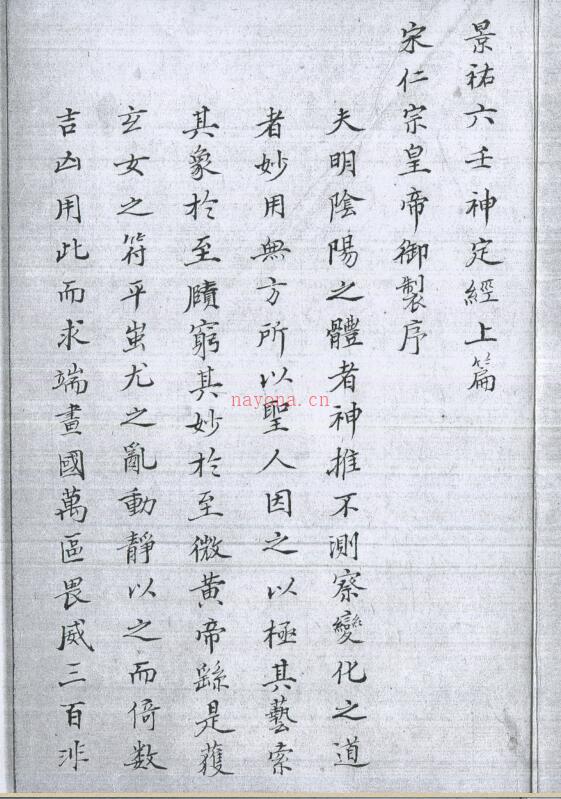 景祐六壬神定經上篇
宋仁宗皇帝御製序
夫明陰陽之體者神推不測察變化之道
者妙用無方所以聖人因之以極其藝索
其象於至賾窮其妙於至微黃帝繇是獲
玄女之符平蚩尤之亂動靜以之而倚數
吉凶用此而求端畫國萬區畏威三百非
nayona.cn